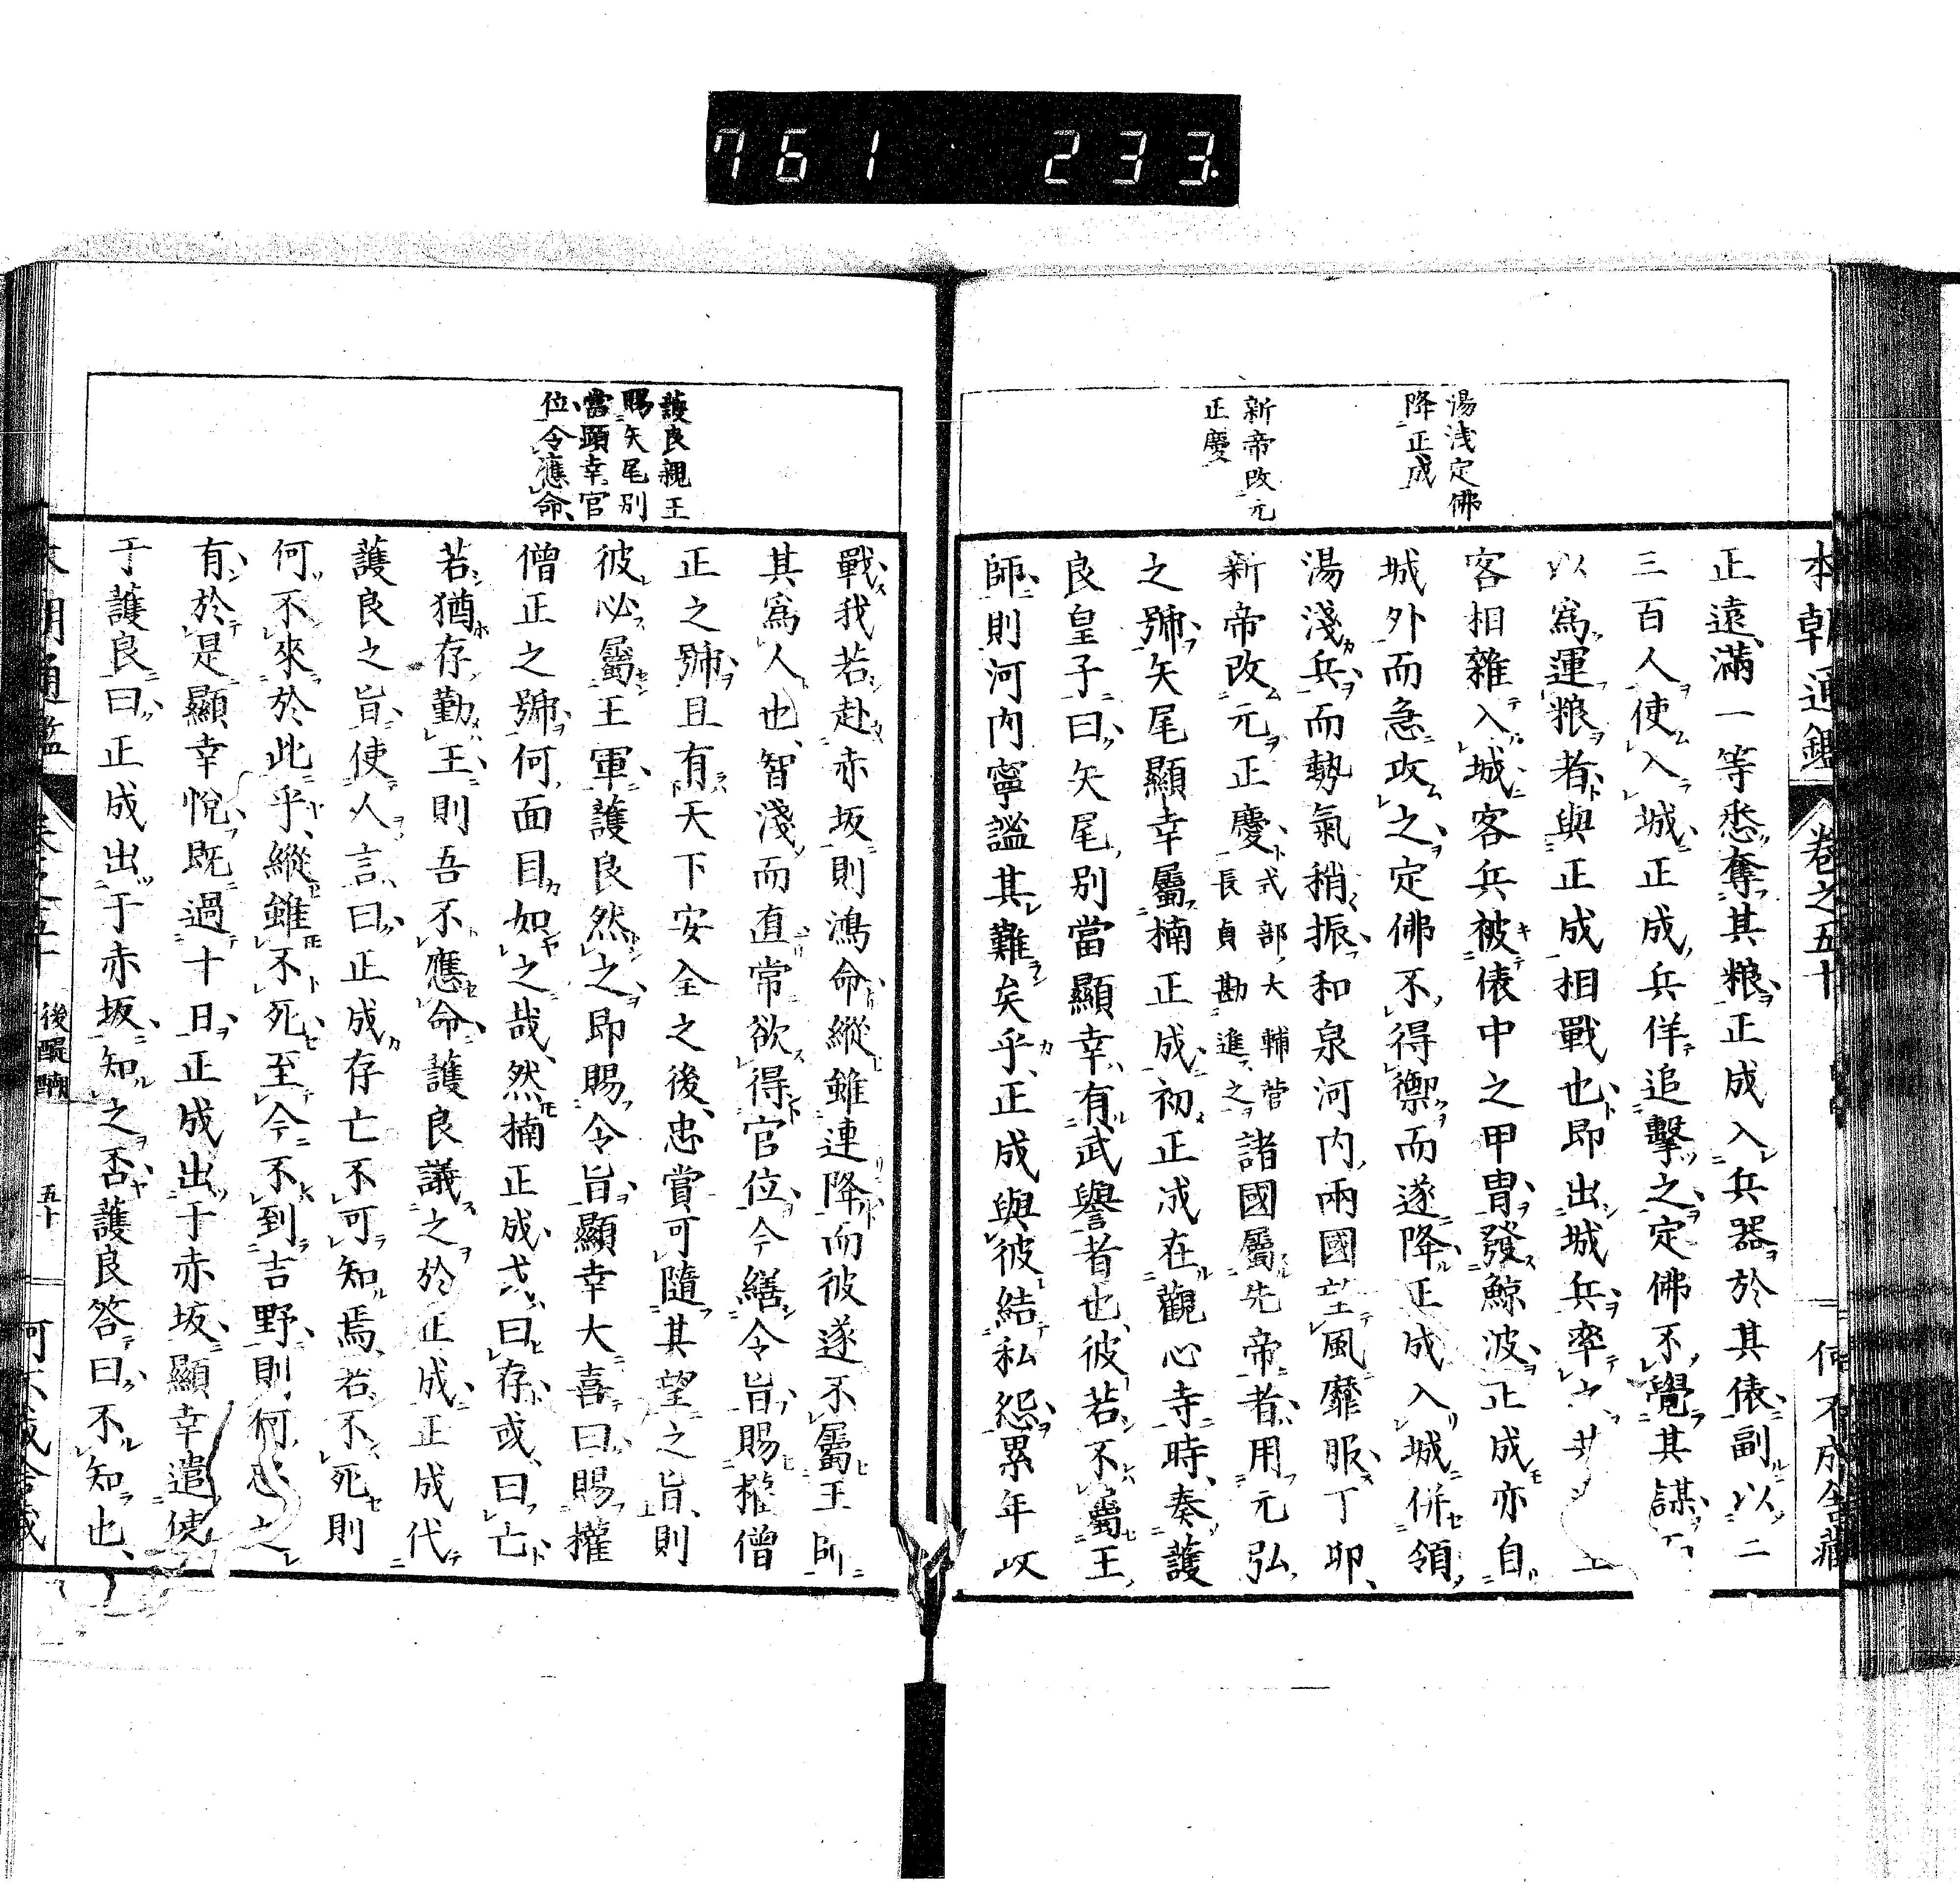 761 233
本朝通鑑 卷之五十
湯淺定佛
降正成
新帝改元
正慶
正遠滿一等悉奪其粮正成入兵器於其俵副以二
三百人使入城正成兵佯追擊之定佛不覺其謀
以爲運粮者與正成相戰也即出城兵率之
客相雜入城客兵被俵中之甲冑發鯨波正成亦自
城外而急攻之定佛不得禦而遂降正成入城併領
湯淺兵而勢氣稍振和泉河内兩國望風靡服丁卯
新帝改元正慶式部大輔菅長貞勘進之諸國屬先帝者用元弘
之號矢尾顯幸屬楠正成初正成在觀心寺時奏護
良皇子曰矢尾別當顯幸有武譽者也彼若不屬王
師則河内寧謐其難矣乎正成與彼結私怨累年以
護良親王
賜矢尾別
當顯幸官
位令應命
戰我若赴赤坂則鴻命縱雖連降而彼遂不屬王師
其爲人也智淺而直常欲得官位今繕令旨賜權僧
正之號且有天下安全之後忠賞可隨其望之旨則
彼必屬王軍護良然之即賜令旨顯幸大喜曰賜權
僧正之號何面目如之哉然楠正成或曰存或曰亡
若猶存勤王則吾不應命護良議之於正成正成代
護良之旨使人言曰正成存亡不可知焉若不死則
何不來於此乎縱雖不死至今不到吉野則何恐之
有於是顯幸悅既過十日正成出于赤坂顯幸遣使
于護良曰正成出于赤坂知之否護良答曰不知也
後醍醐 五十